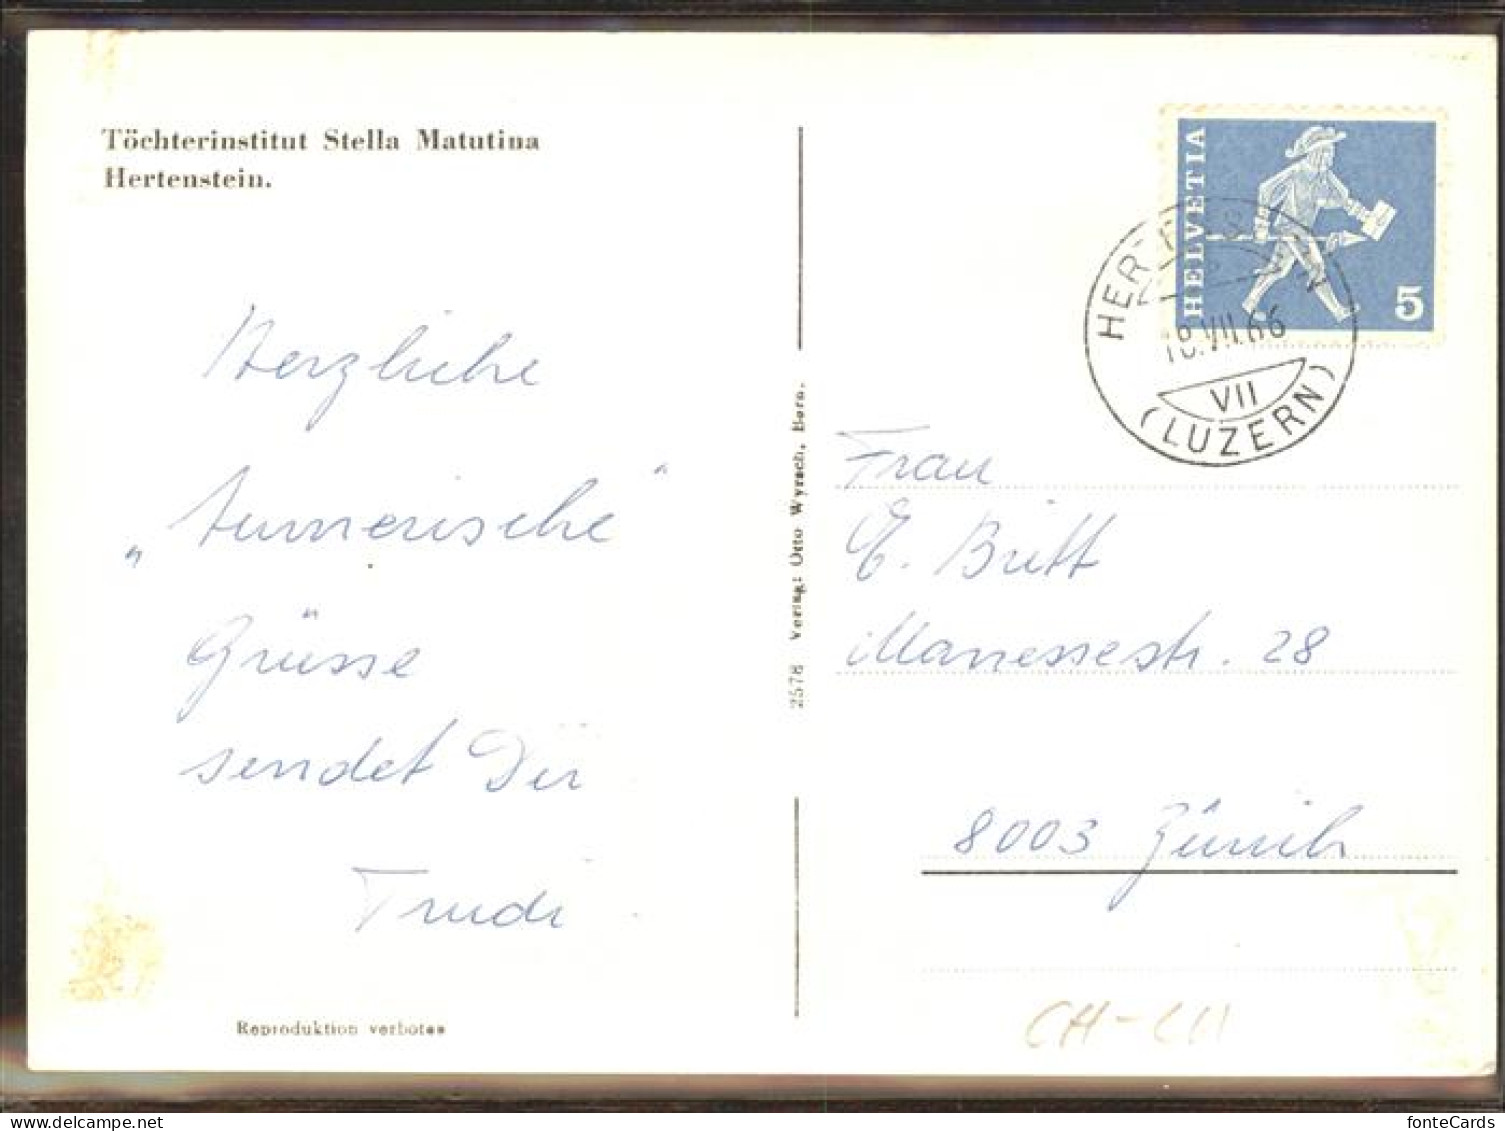 Töchterinstitut Stella Matutina
Hertenstein.
Herzliche
„turnerische"
Grüsse
sendet Dir
Trudi
Reproduktion verboten
2578 Verlag: Otto Wyrsch, Bern.
HELVETIA
5
HERTENSTEIN
18.VII.66
VII
(LUZERN)
Frau
E. Britt
Manessestr. 28
8003 Zürich
fonteCards